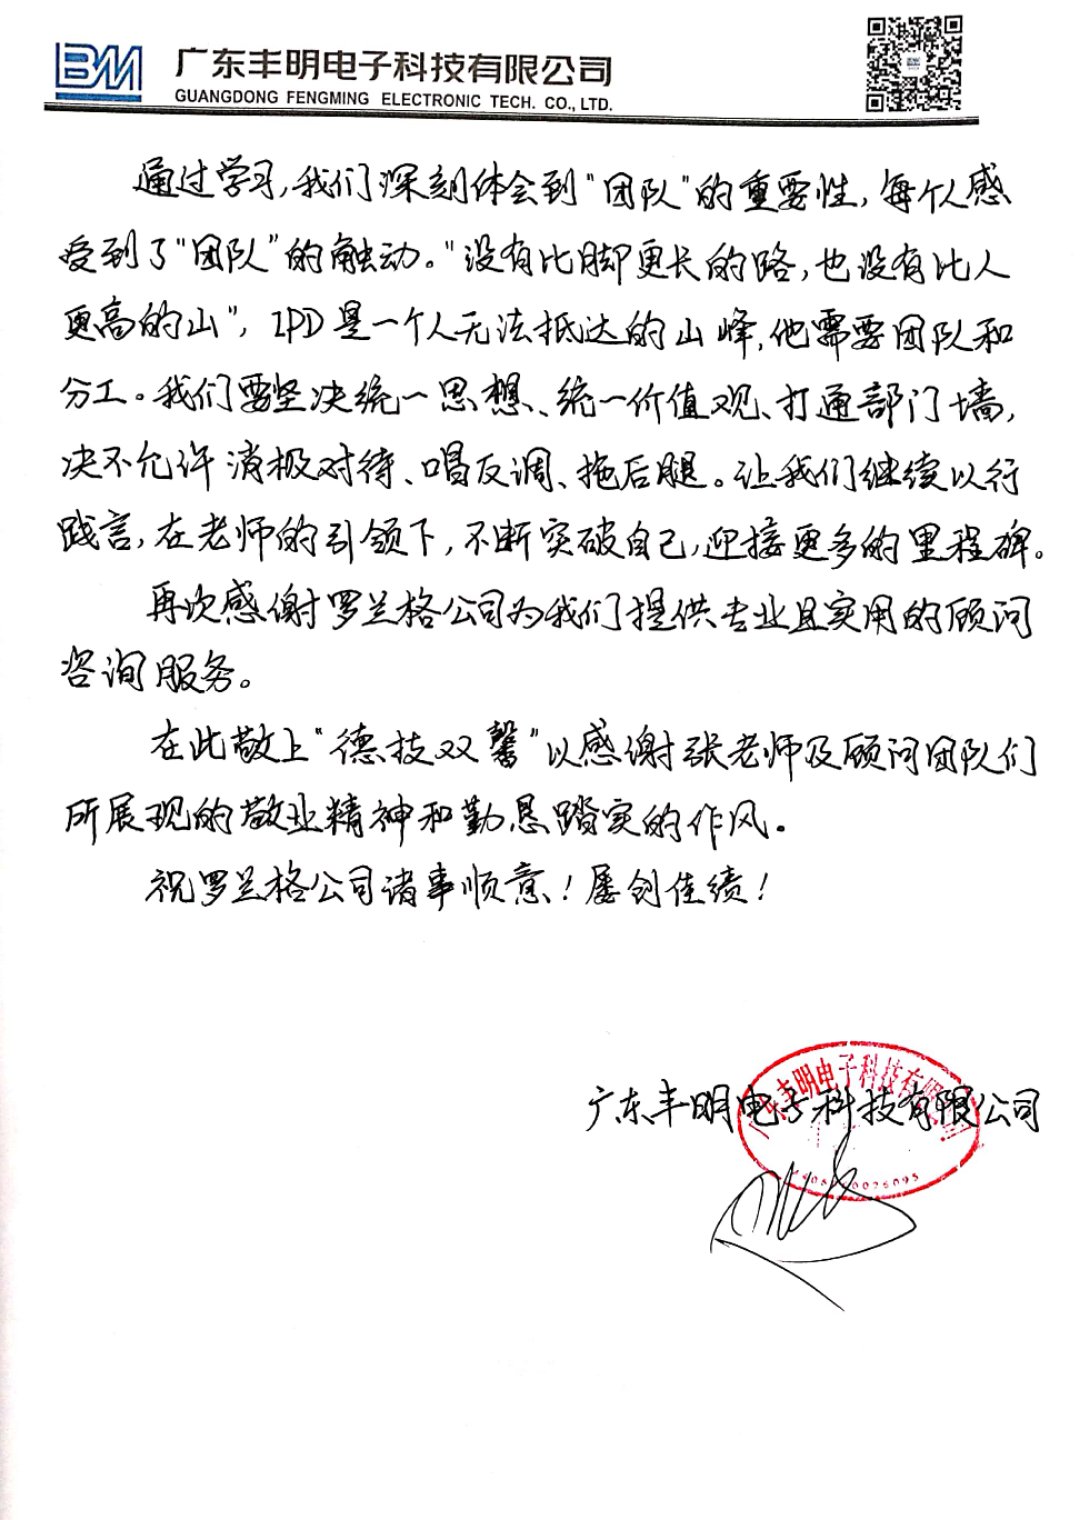 BM
广东丰明电子科技有限公司
GUANGDONG FENGMING ELECTRONIC TECH. CO., LTD.
通过学习,我们深刻体会到"团队"的重要性,每个人感
受到了"团队"的触动。"没有比脚更长的路,也没有比人
更高的山",IPD是一个人无法抵达的山峰,他需要团队和
分工。我们要坚决统一思想、统一价值观、打通部门墙,
决不允许消极对待、唱反调、拖后腿。让我们继续以行
践言,在老师的引领下,不断突破自己,迎接更多的里程碑。
再次感谢罗兰格公司为我们提供专业且实用的顾问
咨询服务。
在此敬上"德技双馨"以感谢张老师及顾问团队们
所展现的敬业精神和勤恳踏实的作风。
祝罗兰格公司诸事顺意!屡创佳绩!
广东丰明电子科技有限公司
广东丰明电子科技有限公司